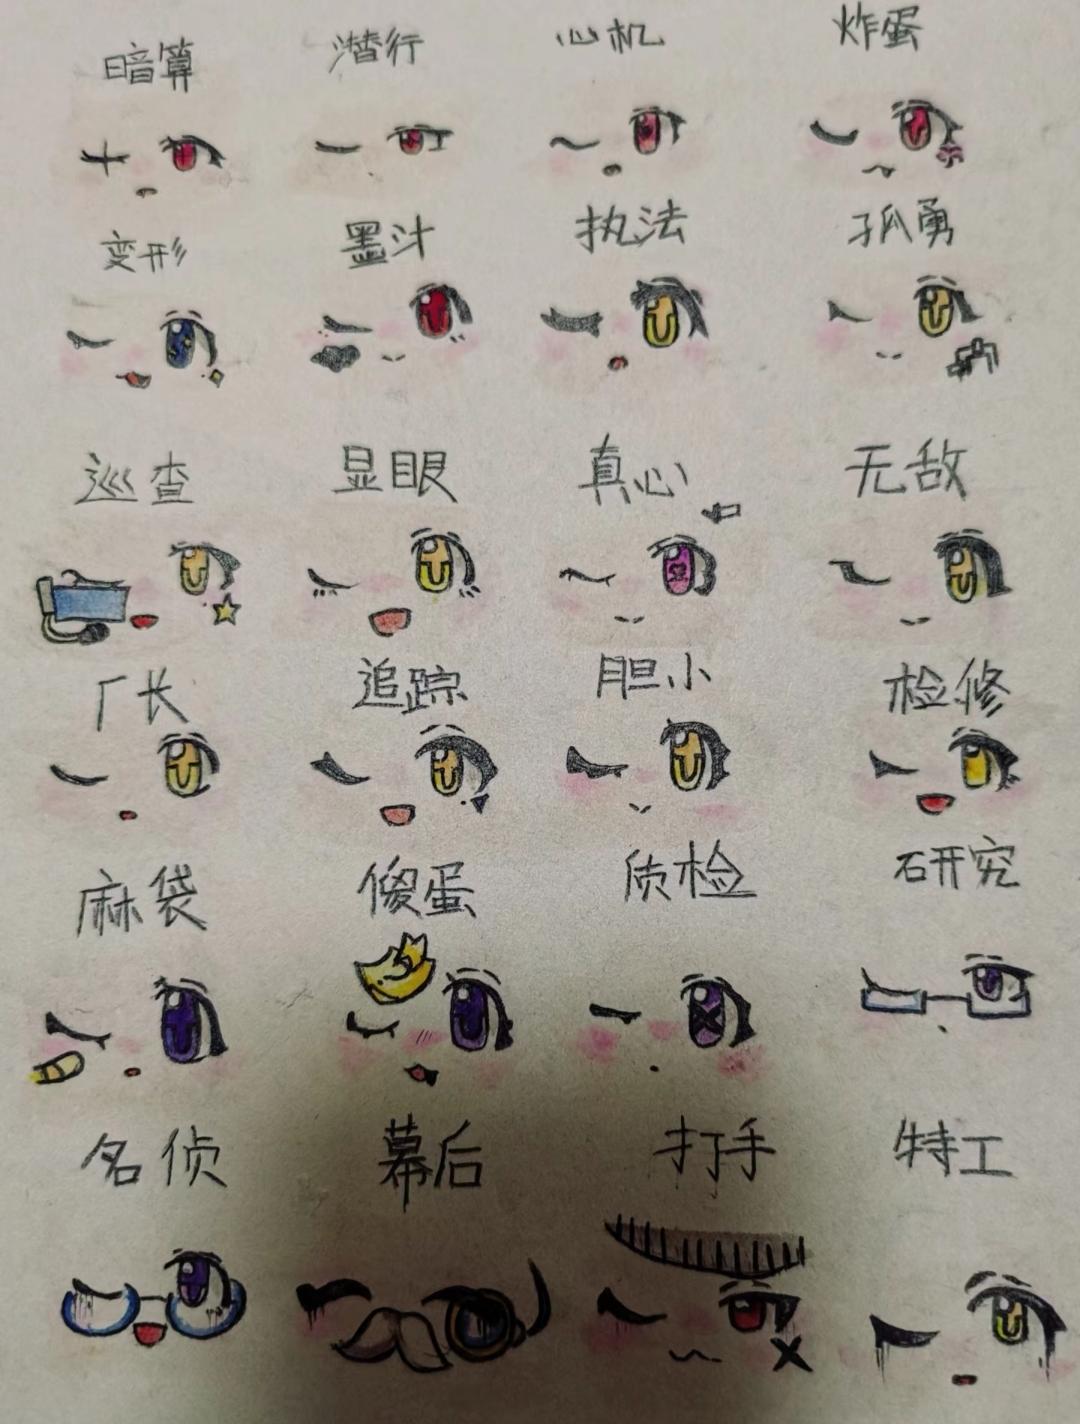 暗算 潜行 心机 炸蛋
变形 墨汁 执法 孤勇
巡查 显眼 真心 无敌
厂长 追踪 胆小 检修
麻袋 傻蛋 质检 研究
名侦 幕后 打手 特工